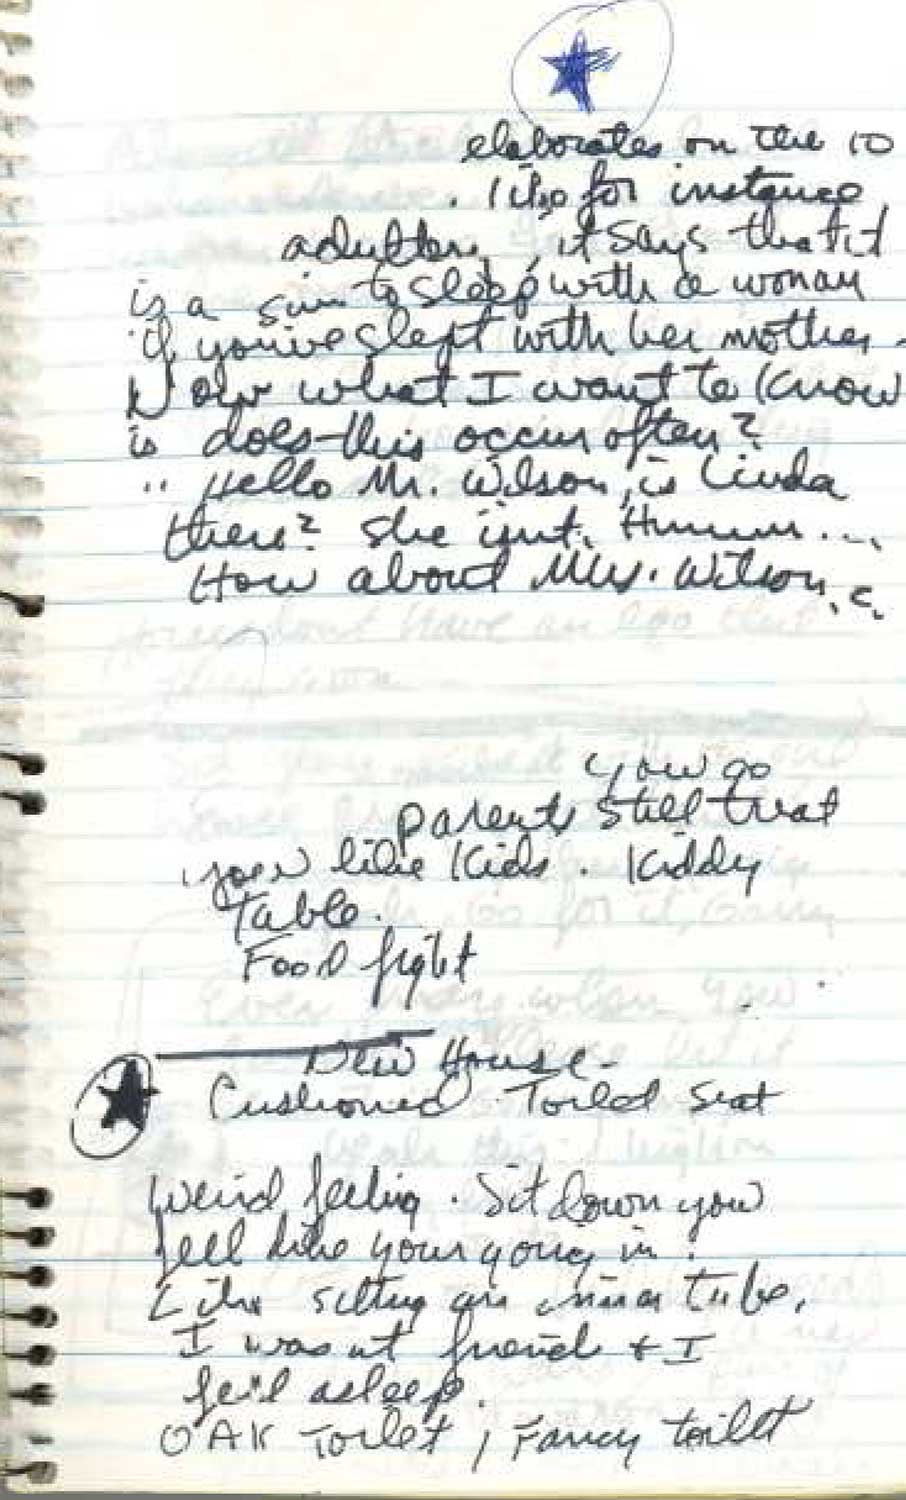 elaborates on the 10
. like for instance
adultery, it says that it
is a sin to sleep with a woman
if you've slept with her mother.
Now what I want to know
is does this occur often?
" Hello Mr. Wilson, is Linda
there? She isnt. Hmmm....
How about Mrs. Wilson.
you go
parents still treat
you like Kids. Kiddy
Table.
Food fight
New House-
Cushioned Toilet Seat
Weird feeling. Sit down you
feel like your going in.
Like sitting on inner tube.
I was at friends & I
fell asleep.
OAK Toilet, Fancy toilet